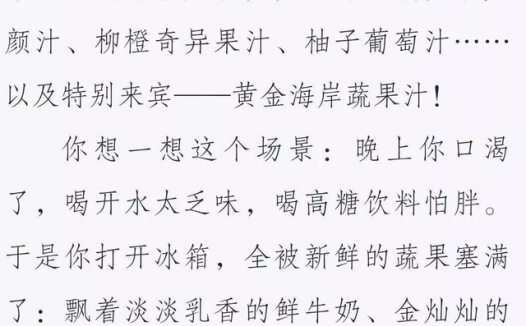 颜汁、柳橙奇异果汁、柚子葡萄汁……
以及特别来宾——黄金海岸蔬果汁！
你想一想这个场景：晚上你口渴
了，喝开水太乏味，喝高糖饮料怕胖。
于是你打开冰箱，全被新鲜的蔬果塞满
了：飘着淡淡乳香的鲜牛奶、金灿灿的